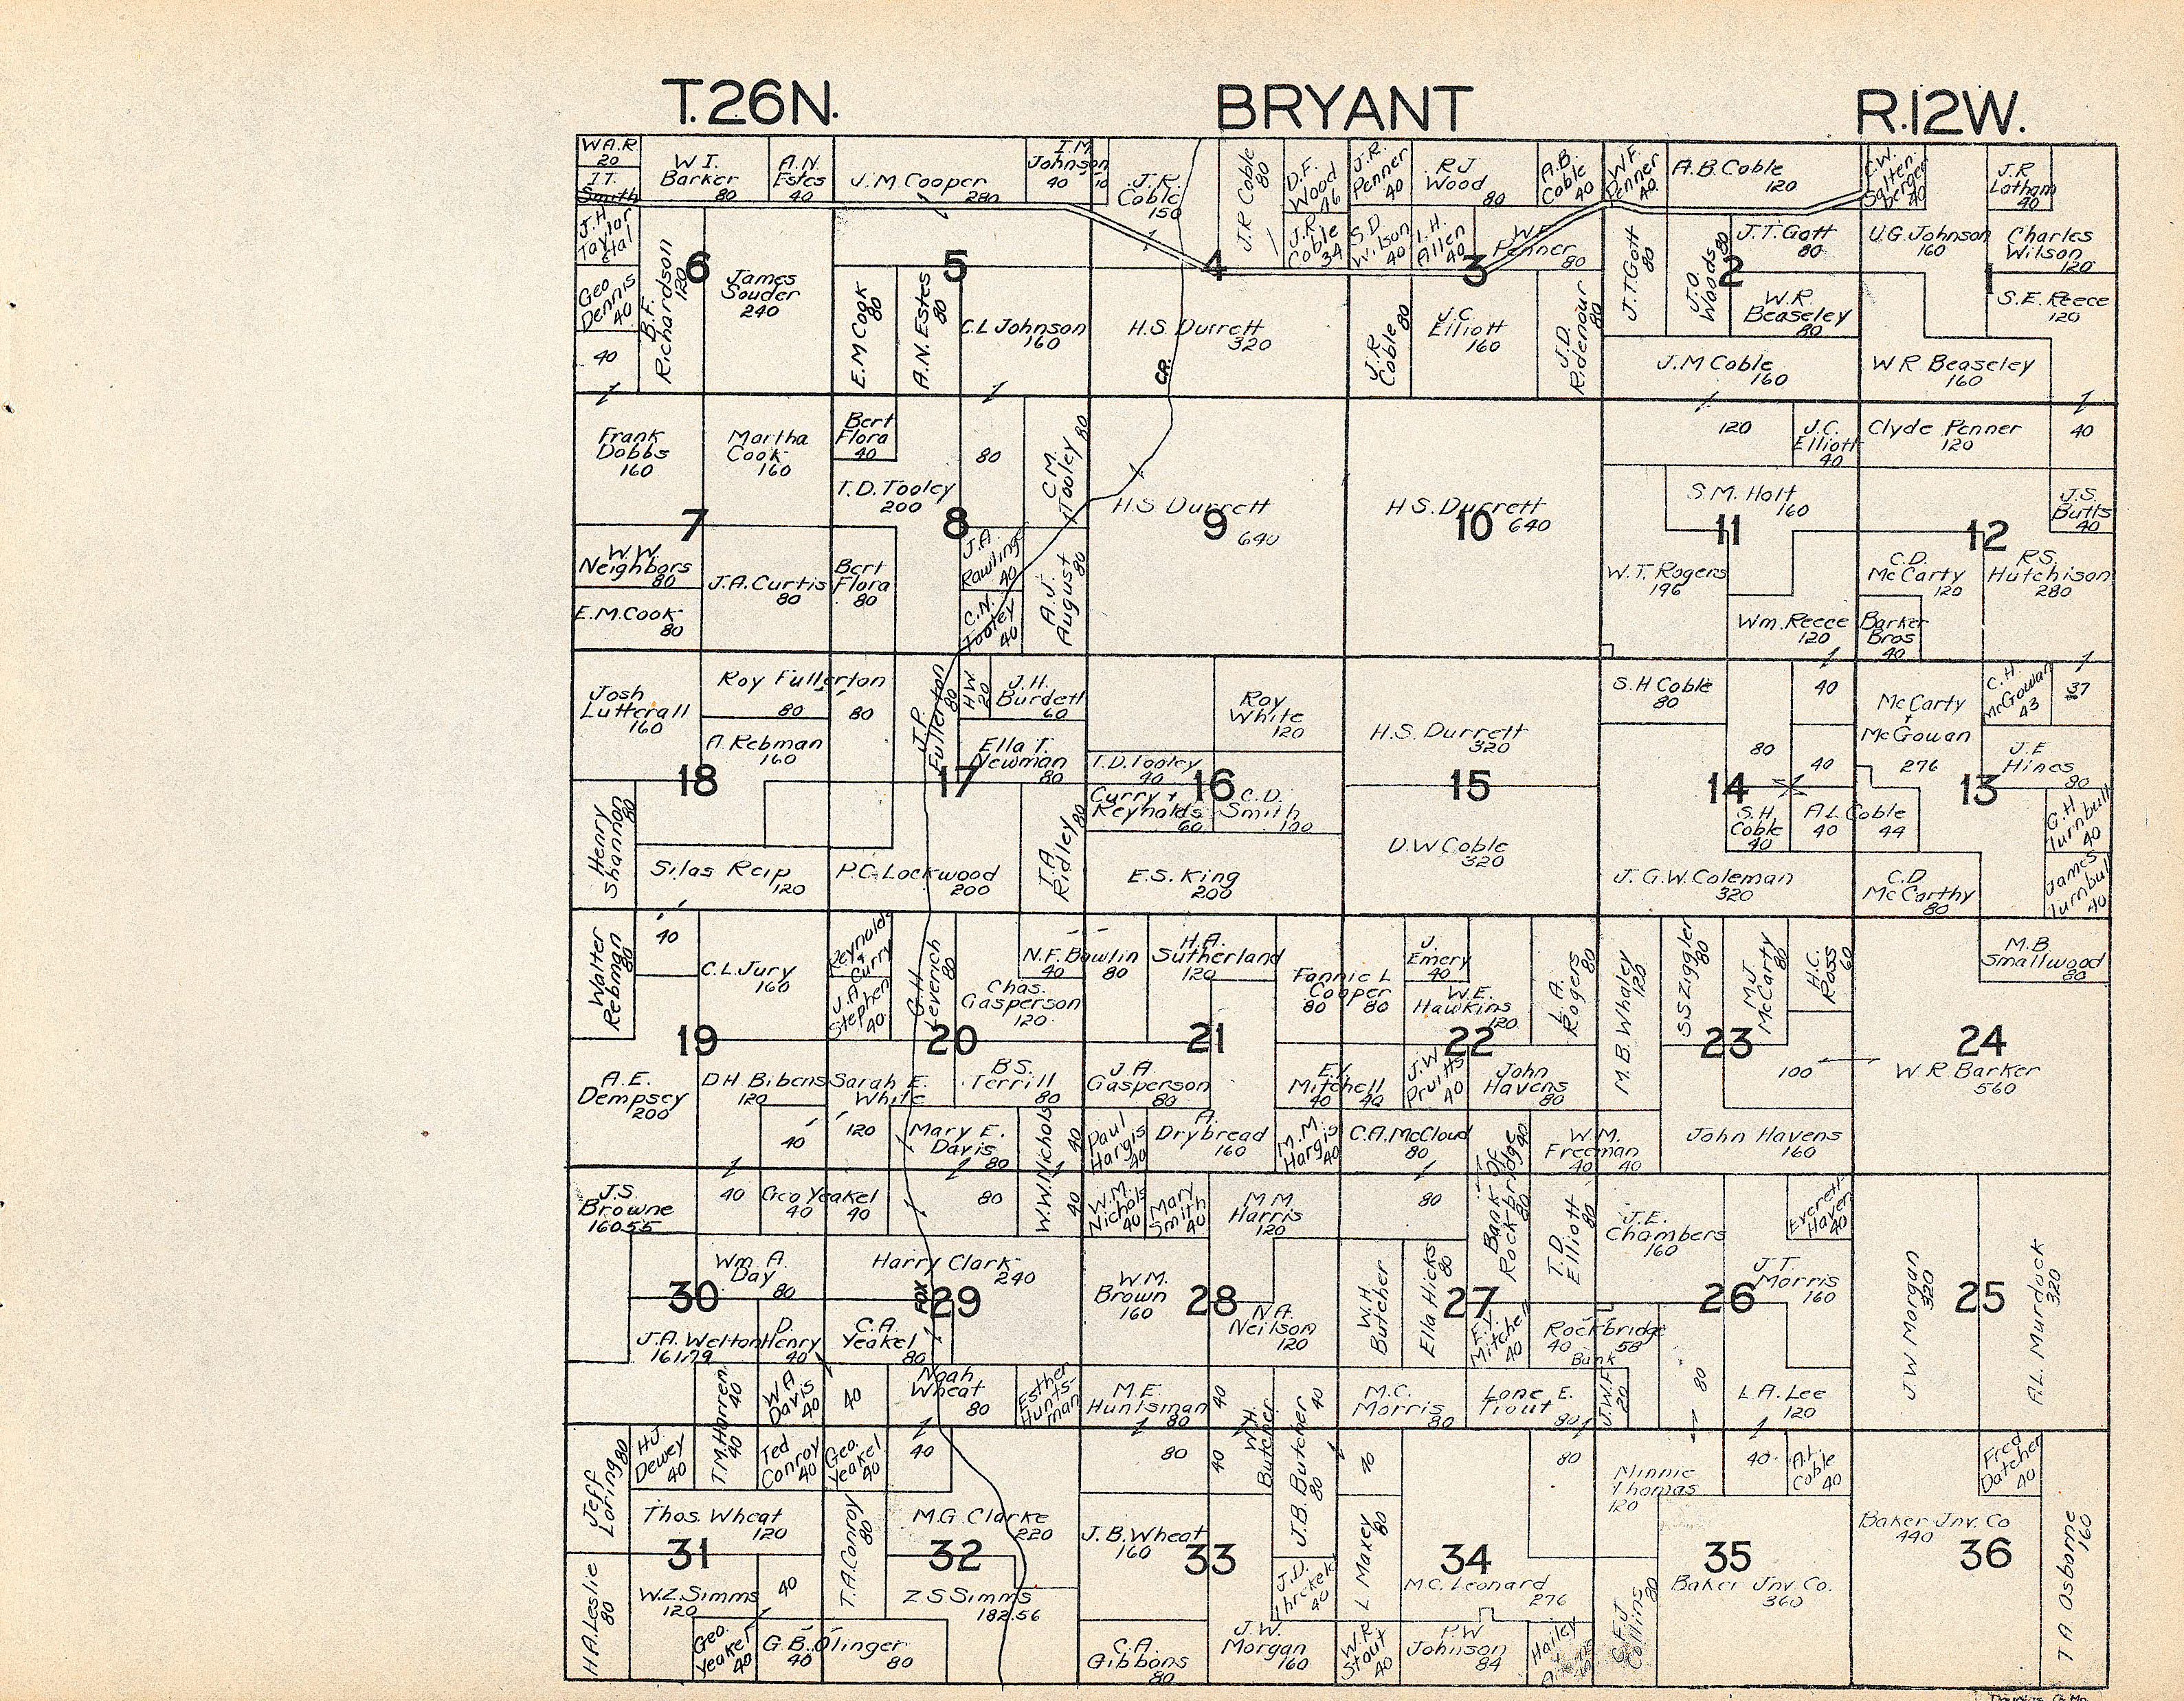 T.26N. BRYANT R.12W.
W.A.R
20
I.T.
Smith
W I.
Barker
80
A.N
Estes
40
J.M Cooper
280
I.M
Johnson
40 10
J.R.
Coble
150
J.R Coble
80
D.F.
Wood
46
J.R.
Penner
40
R J
Wood
80
A.B.
Coble
40
W F.
Penner
40
A.B. Coble
120
C.W.
Salten-
berger
40
J.R
Latham
40
J.H.
Taylor
etal
Geo
Dennis
40
40
B.F.
Richardson
120
6
James
Souder
240
5
E.M Cook
80
A.N. Estes
80
C.L Johnson
160
4
H.S. Durrett
320
CR.
J.R
Coble
34
S.D
Wilson
40
I.H.
Allen
40
3
W F
Penner
80
J.R
Coble
80
J.C.
Elliott
160
J.D.
Ridenour
80
J.T Gott
80
J.O.
Woods
80
2
J.T. Gott
80
W.R.
Beaseley
80
J.M Coble
160
U.G. Johnson
160
Charles
Wilson
120
1
S.E. Reece
120
W R Beaseley
160
Frank
Dobbs
160
Martha
Cook
160
7
W.W.
Neighbors
80
E.M.Cook
80
J.A. Curtis
80
Bert
Flora
40
T.D. Tooley
200
8
80
C M.
Tooley
80
Bert
Flora
80
J.A.
Rawlings
40
C.N.
Tooley
40
A.J.
August
80
H.S Durrett
9
640
H.S. Durrett
10 640
120
J.C.
Elliott
40
S.M. Holt
160
11
W.T. Rogers
196
Wm. Reece
120
Clyde Penner
120
40
J.S.
Butts
40
12
C.D.
McCarty
120
R.S.
Hutchison
280
Barker
Bros
40
Josh
Luttrall
160
Roy Fullerton
80 80
A. Rebman
160
18
Henry
Shannon
80
Silas Reip
120
J.P.
Fullerton
80
H W
20
J.H.
Burdett
60
Ella T.
Newman
80
17
P.C. Lockwood
200
T.A
Ridley
80
Roy
White
120
T.D. Tooley
40
16
Curry +
Reynolds
60
C.D.
Smith
100
E.S. King
200
H.S. Durrett
320
15
D.W Coble
320
S.H Coble
80
40
80
40
14
S.H.
Coble
40
A L Coble
40 44
J. G.W. Coleman
320
McCarty
+
McGowan
276
C.H.
McGowan
43
37
J.E
Hines
80
13
G.H
Turnbull
40
James
Turnbull
40
C.D
McCarthy
80
Walter
Rebman
80
40
C.L. Jury
160
19
A.E.
Dempsey
200
D.H Bibens
120
40
Reynolds
+
Curry
J.A
Stephens
40
G.H
Leverich
80
N.F. Bowlin
40 80
Chas.
Gasperson
120
20
Sarah E.
White
120
B S.
Terrill
80
Mary E.
Davis
80
W.W. Nichols
40
40
H.A.
Sutherland
120
21
J.A
Gasperson
80
Paul
Hargis
40
A.
Drybread
160
Fannie L
Cooper
80 80
J.
Emery
40
W.E.
Hawkins
120
L.A.
Rogers
80
22
E.Y.
Mitchell
40 40
J.W
Pruitts
40
John
Havens
80
M.M.
Hargis
40
C.A. McCloud
80
Bank OF
Rockbridge
40
80
W.M.
Freeman
40 40
M.B. Whaley
120
S S Ziggler
80
M.J.
McCarty
80
H.C.
Ross
60
23
100
John Havens
160
M.B.
Smallwood
80
24
W R Barker
560
J.S.
Browne
160.55
40
Geo Yeakel
40 40
Wm. A.
Day
80
30
J.A. Welton
161.79
D.
Henry
40
T.M. Harren
40
40
W A
Davis
40
80
Harry Clark
240
FOX
29
C.A.
Yeakel
80
40
Noah
Wheat
80
Esther
Hunts-
man
W.M.
Nichols
40
Mary
Smith
40
M M
Harris
120
W M.
Brown
160
28
N.A.
Neilson
120
M.E.
Huntsman
80
40
W.H.
Butcher
40
J.B. Butcher
40
80
80
W.H.
Butcher
Ella Hicks
80
27
E.Y.
Mitchel
40
T.D.
Elliott
80
Rockbridge
40 58
Bank
M.C.
Morris
80
Lone E.
Trout
80
J.W.F.
20
J.E.
Chambers
160
Everett
Haven
40
J T.
Morris
160
26
80
L.A. Lee
120
J W Morgan
320
25
A.L. Murdock
320
Jeff
Loring
80
H J
Dewey
40
Ted
Conroy
40
Geo.
Yeakel
40
Thos. Wheat
120
31
H A. Leslie
80
W.Z. Simms
120
40
Geo.
Yeakel
40
G.B. Olinger
40 80
40
T.A. Conroy
80
M.G. Clarke
220
32
Z S Simms
182.56
80
J.B. Wheat
160
33
J.D.
Threlkeld
40
C.A.
Gibbons
80
J.W.
Morgan
160
L Maxey
80
80
34
M.C. Leonard
276
W R
Stout
40
P.W
Johnson
84
Hailey
Minnie
Thomas
120
40
A.L.
Coble
40
35
Baker Inv. Co.
360
Collins
80
Fred
Datcher
40
Baker Inv. Co
440
36
T A Osborne
160